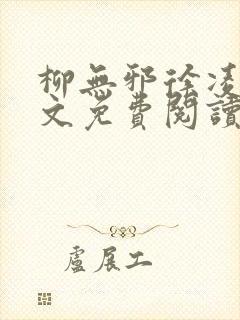 柳無邪徐凌
文免費閱讀
盧展工